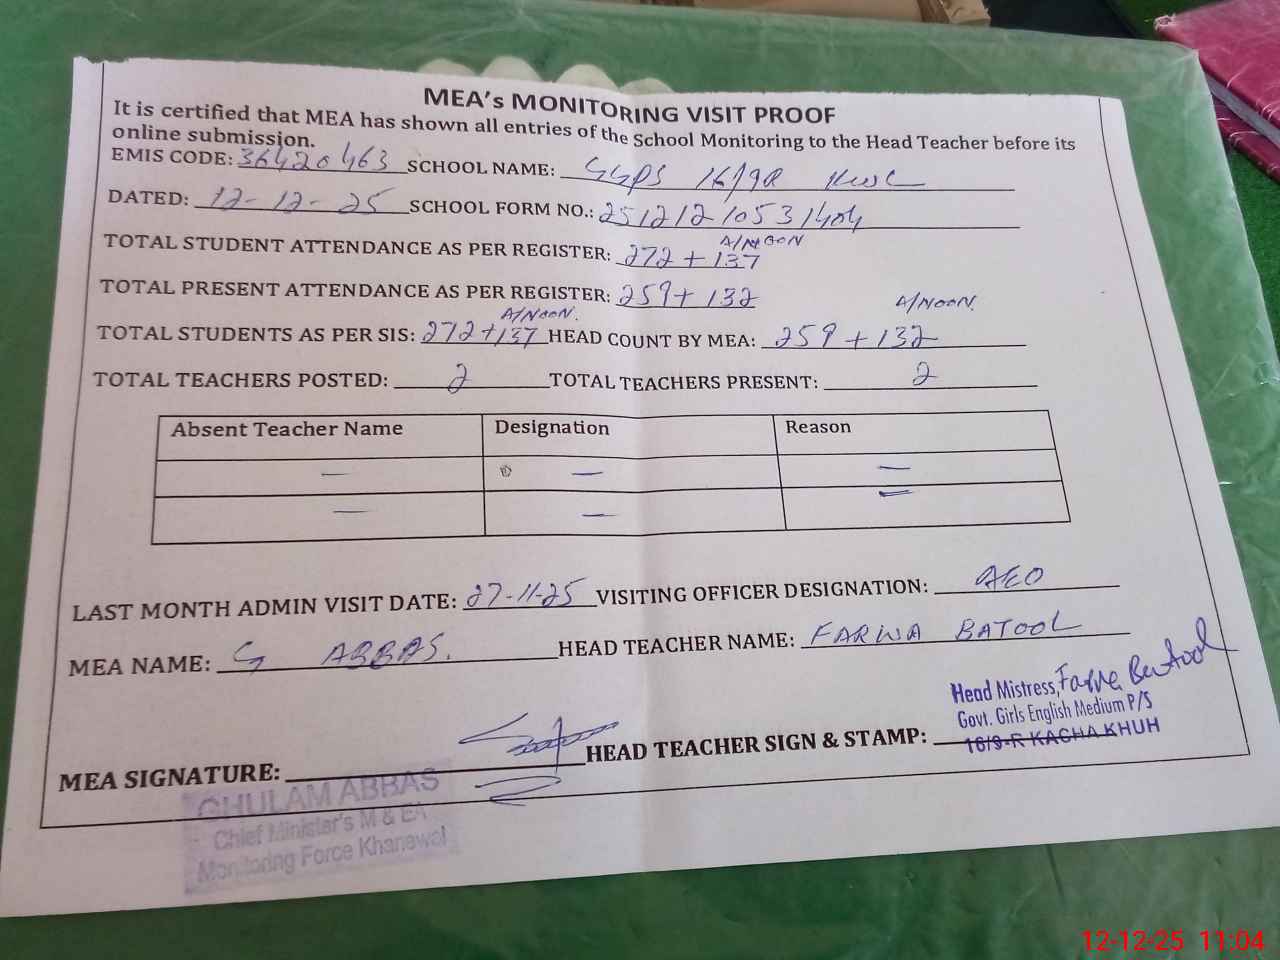 MEA's MONITORING VISIT PROOF
It is certified that MEA has shown all entries of the School Monitoring to the Head Teacher before its
online submission.
EMIS CODE: 36420463 SCHOOL NAME: GGPS 16/9R KWL
DATED: 12-12-25 SCHOOL FORM NO.: 25121210531404
A/NOON
TOTAL STUDENT ATTENDANCE AS PER REGISTER: 272 + 137
TOTAL PRESENT ATTENDANCE AS PER REGISTER: 259 + 132
A/NOON. A/NOON.
TOTAL STUDENTS AS PER SIS: 272 + 137 HEAD COUNT BY MEA: 259 + 132
TOTAL TEACHERS POSTED: 2 TOTAL TEACHERS PRESENT: 2
Absent Teacher Name Designation Reason
— — —
— — —
LAST MONTH ADMIN VISIT DATE: 27-11-25 VISITING OFFICER DESIGNATION: AEO
MEA NAME: G ABBAS. HEAD TEACHER NAME: FARWA BATOOL
Head Mistress, Farwa Batool
Govt. Girls English Medium P/S
16/9-R KACHA KHUH
MEA SIGNATURE: HEAD TEACHER SIGN & STAMP:
GHULAM ABBAS
Chief Minister's M & EA
Monitoring Force Khanewal
12-12-25 11:04